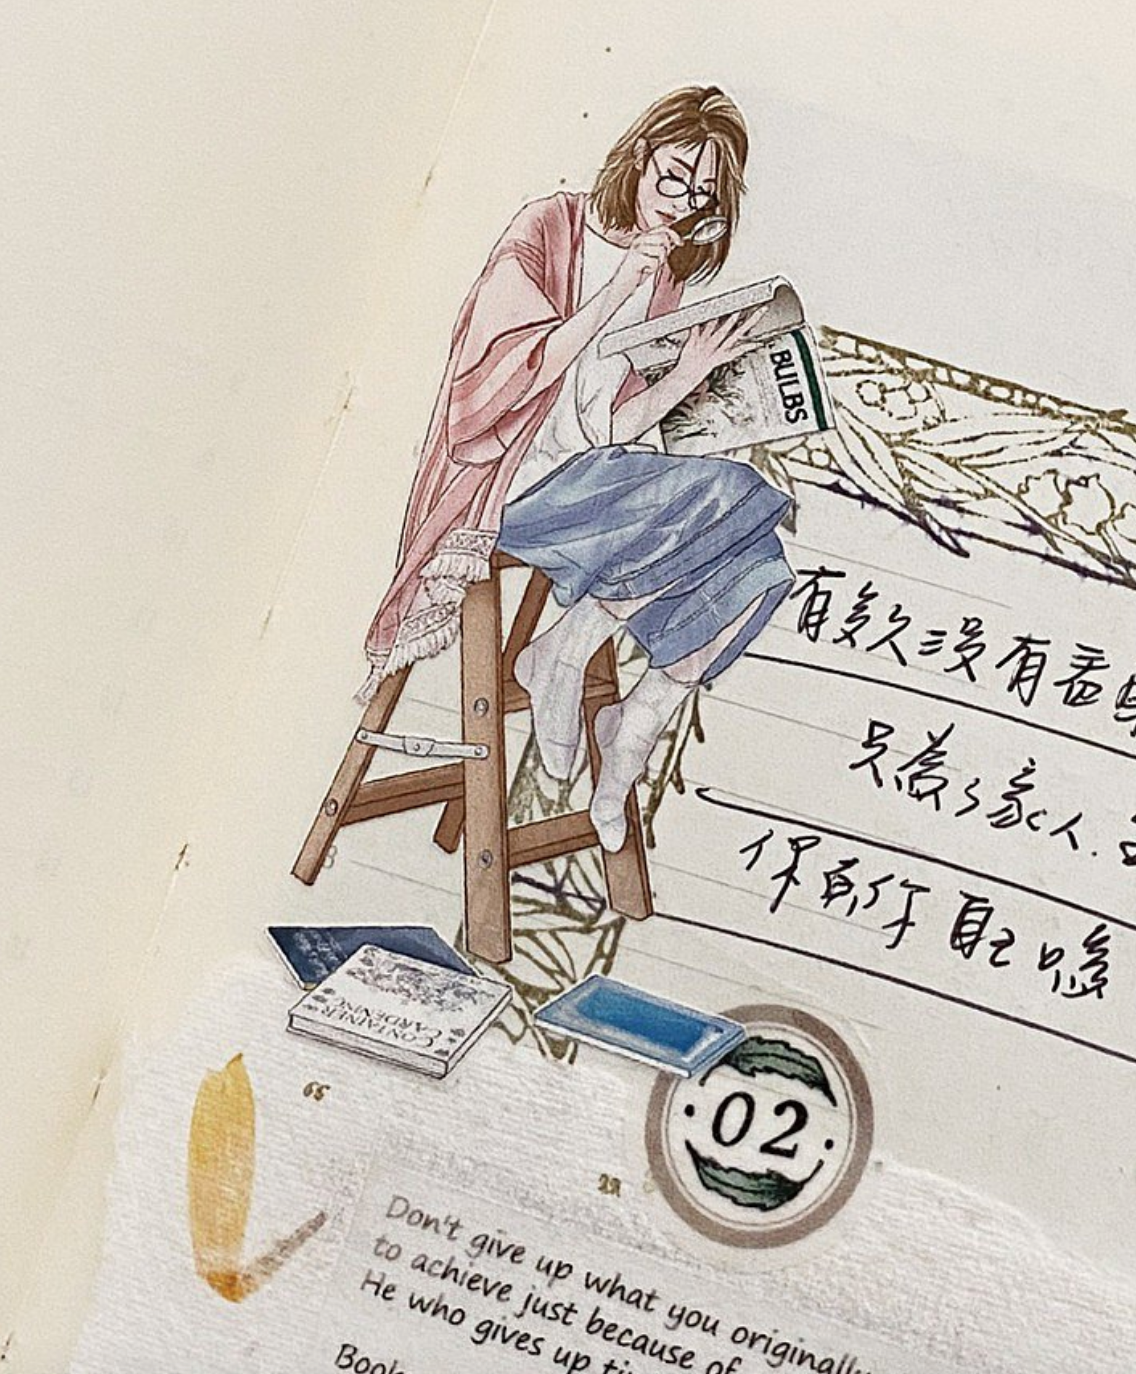 BULBS
有多久沒有盡
只為了家人.
保有你自己嗎
CONTAINER
GARDENING
65
02
Don't give up what you originally
to achieve just because of
He who gives up
Book